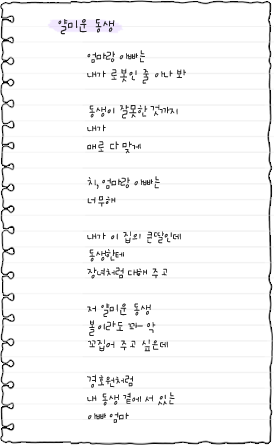 얄미운 동생
엄마랑 아빠는
내가 로봇인 줄 아나 봐
동생이 잘못한 것까지
내가
매로 다 맞게
치, 엄마랑 아빠는
너무해
내가 이 집의 큰딸인데
동생한테
장녀처럼 다해 주고
저 얄미운 동생
볼이라도 꽈- 악
꼬집어 주고 싶은데
경호원처럼
내 동생 곁에 서 있는
아빠 엄마